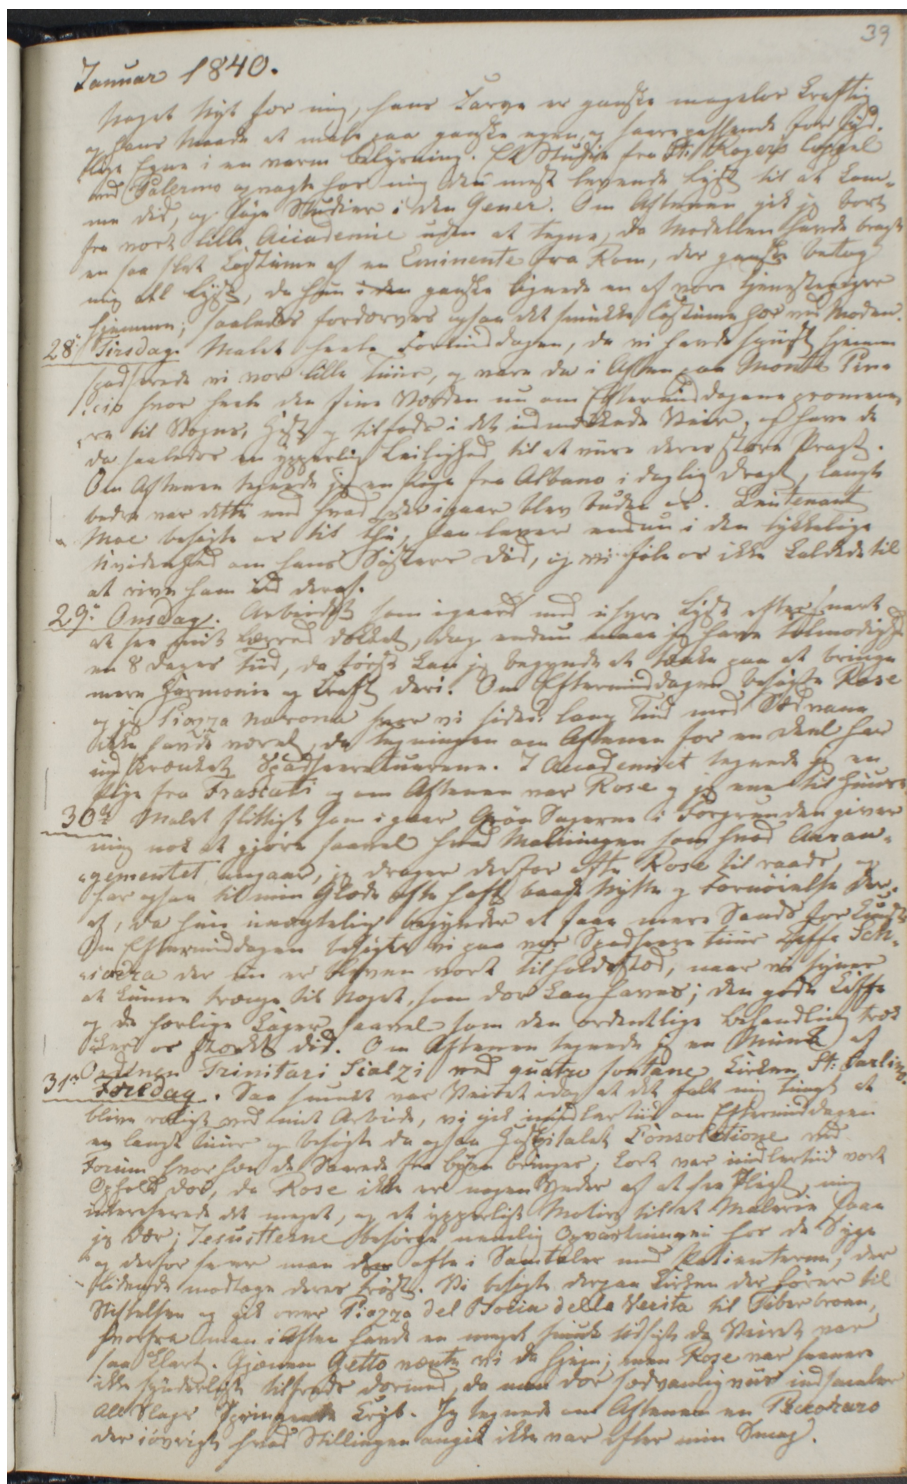 39
Januar 1840.
Noget Nyt for mig, hans Farve er ganske mageløs kraftig
og hans Maade at male paa ganske egen, og passende for Syd-
lige Egne i en varm Belysning. Et Studie fra St: Rogers Cappel
ved Palermo opvagte hos mig den mest levende Lyst til at kom-
me did, og søge Studier i den Genre. Om Aftenen gik jeg bort
fra vort lille Acciademie uden at tegne, da Modellen havde bragt
en saa slet Costüme af en Eminente fra Rom, der ganske betog
mig all Lyst, da hun ganske lignede en af vore Tjenestepiger
hjemme; saaledes fordærves ogsaa det smukke Costüme her ved Moden.
28: Tirsdag. Malet heele Formiddagen, da vi havde spiist hjemme
spadserede vi vor lille Tuur, og vare da i Aften paa Monte Pin-
cio hvor heele den fine Verden nu om Eftermiddagene promene-
re til Vogns, Hest og tilfods i det udmærkede Veir, og have de
da saaledes en ypperlig Leilighed til at vise deres store Pragt.
Om Aftenen tegnede jeg en Pige fra Albano i daglig Dragt, langt
bedre var dette end hvad der igaar blev buden os. Leutenant
Moe besøgte os til Thee, han lever endnu i den lykkelige
Uvidenhed om hans Søsters Død, og vi føle os ikke kaldede til
at rive ham ud deraf.
29: Onsdag. Arbeidet som igaar med Lyst efter snart
at see mit Lærred dækket, dog endnu maa jeg have Taalmodighed
en 8 Dages Tiid, da først kan jeg begynde at tænke paa at bringe
mere Harmonie og Kraft deri. Om Eftermiddagen besøgte Rose
og jeg Piazza navona hvor vi siden lang Tiid mod Sædvane
ikke havde været, da Tegningen om Aftenen for en Deel har
indskrænket Spadseretuurene. I Accademiet tegnede jeg en
Pige fra Frascati og om Aftenen var Rose og jeg ene til Huuse.
30: Malet flittigt som igaar Sagerne i Forgrunden giver
mig nok at gjøre saavel hvad Malningen som hvad Arran-
gementet angaar, jeg drager derfor ofte Rose til raads, og
har ogsaa til min Glæde ofte haft baade Nytte og Fornøielse der-
af, da hun unægtelig begynder at faae mere Sands for Kunst.
Om Eftermiddagen besøgte vi paa vor Spadsere tuur Caffe
der nu er bleven vort Tilholdssted, naar vi synes
at kunne trænge til Noget, som der kan haves; den gode Caffe
og de herlige Kager saavel som den ordentlige Behandling træk-
ker os stærkt did. Om Aftenen tegnede jeg en Munk af
Ordenen Trinitari Scalzi ved quatro fontane, Kirken St: Carlino.
31: Fredag. Saa smukt var Veiret idag at det faldt mig tungt at
blive roligt ved mit Arbeide, vi gik imidlertiid om Eftermiddagen
en langt Tuur og besøgte da ogsaa Hospitalet Consolatione ved
Forum hvorhen de Saarede fra byen bringes; kort var imidlertiid vort
Ophold der, da Rose ikke er nogen Ynder af at see Sligt, mig
interesserede det meget, og et ypperligt Motiv til et Malerie saae
jeg der; Jesuitterne besørge nemlig Opvartningen hos de Syge
og derfor seer man dem ofte i Samtaler med Patienterne, der
lidende modtage deres Trøst. Vi besøgte derpaa Kirken der hører til
Stiftelsen og gik over Piazza del Bocca della Verita til Tiberbroen,
hvorfra Onden i Aften havde en meget smuk Udsigt da Veiret var
saa klart. Gjennem Getto vendte vi da hjem; men Rose var
ikke synderligt tilfreds dermed, da man der sædvanligviis indsamler
all Slags Springende Kryb. Jeg tegnede om Aftenen en Pecoraro
der iøvrigt hvad Stillingen angik ikke var efter min Smag.